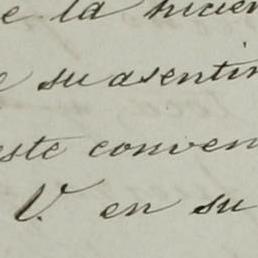 e la hicier
e su asentin
este conven
V. en su